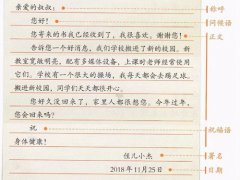 亲爱的叔叔：
称呼
您好！
问候语
您寄来的书我已经收到了，我很喜欢，谢谢您！
正文
告诉您一个好消息，我们学校搬进了新的校园，新
教室宽敞明亮，配有多媒体设备，上课时老师经常使用
它们。学校有一个很大的操场，我每天都会去踢足球。
搬进新校园，同学们天天都很开心。
您好久没回来了，家里人都很想您，今年过年，
您会回来吗？
祝
祝福语
身体健康！
侄儿小杰
署名
2018年11月25日
日期